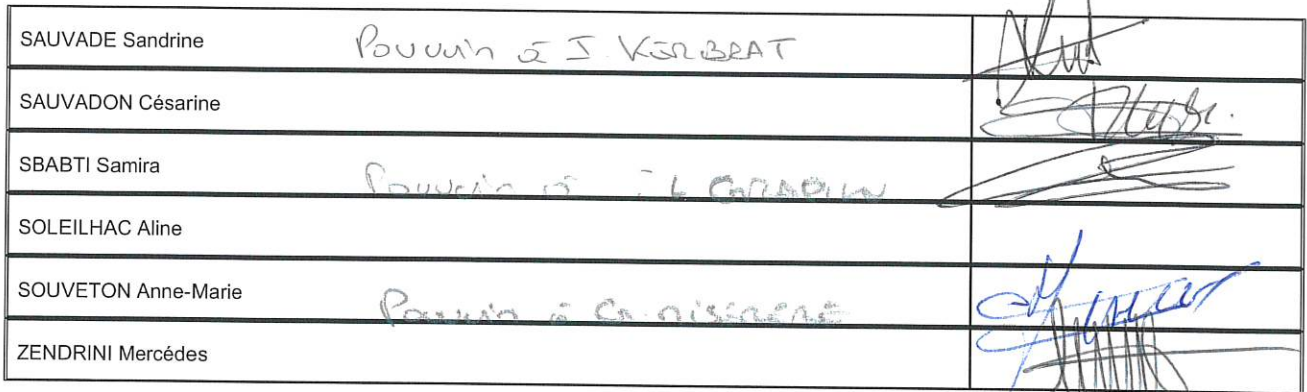 SAUVADE Sandrine Pouvoir à I. KERBRAT
SAUVADON Césarine
SBABTI Samira Pouvoir à
SOLEILHAC Aline
SOUVETON Anne-Marie Pouvoir à
ZENDRINI Mercédes